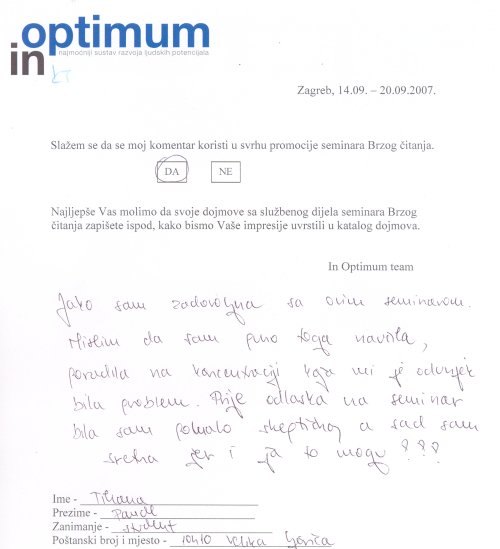 optimum
najmoćniji sustav razvoja ljudskih potencijala
in
Zagreb, 14.09. – 20.09.2007.
Slažem se da se moj komentar koristi u svrhu promocije seminara Brzog čitanja.
DA NE
Najljepše Vas molimo da svoje dojmove sa službenog dijela seminara Brzog
čitanja zapišete ispod, kako bismo Vaše impresije uvrstili u katalog dojmova.
In Optimum team
Jako sam zadovoljna sa ovim seminarom.
Mislim da sam puno toga naučila,
poradila na koncentraciji koja mi je oduvijek
bila problem. Prije odlaska na seminar
bila sam pomalo skeptična a sad sam
sretna jer i ja to mogu !!!
Ime - Tihana
Prezime -
Zanimanje - student
Poštanski broj i mjesto - 10410 Velika Gorica